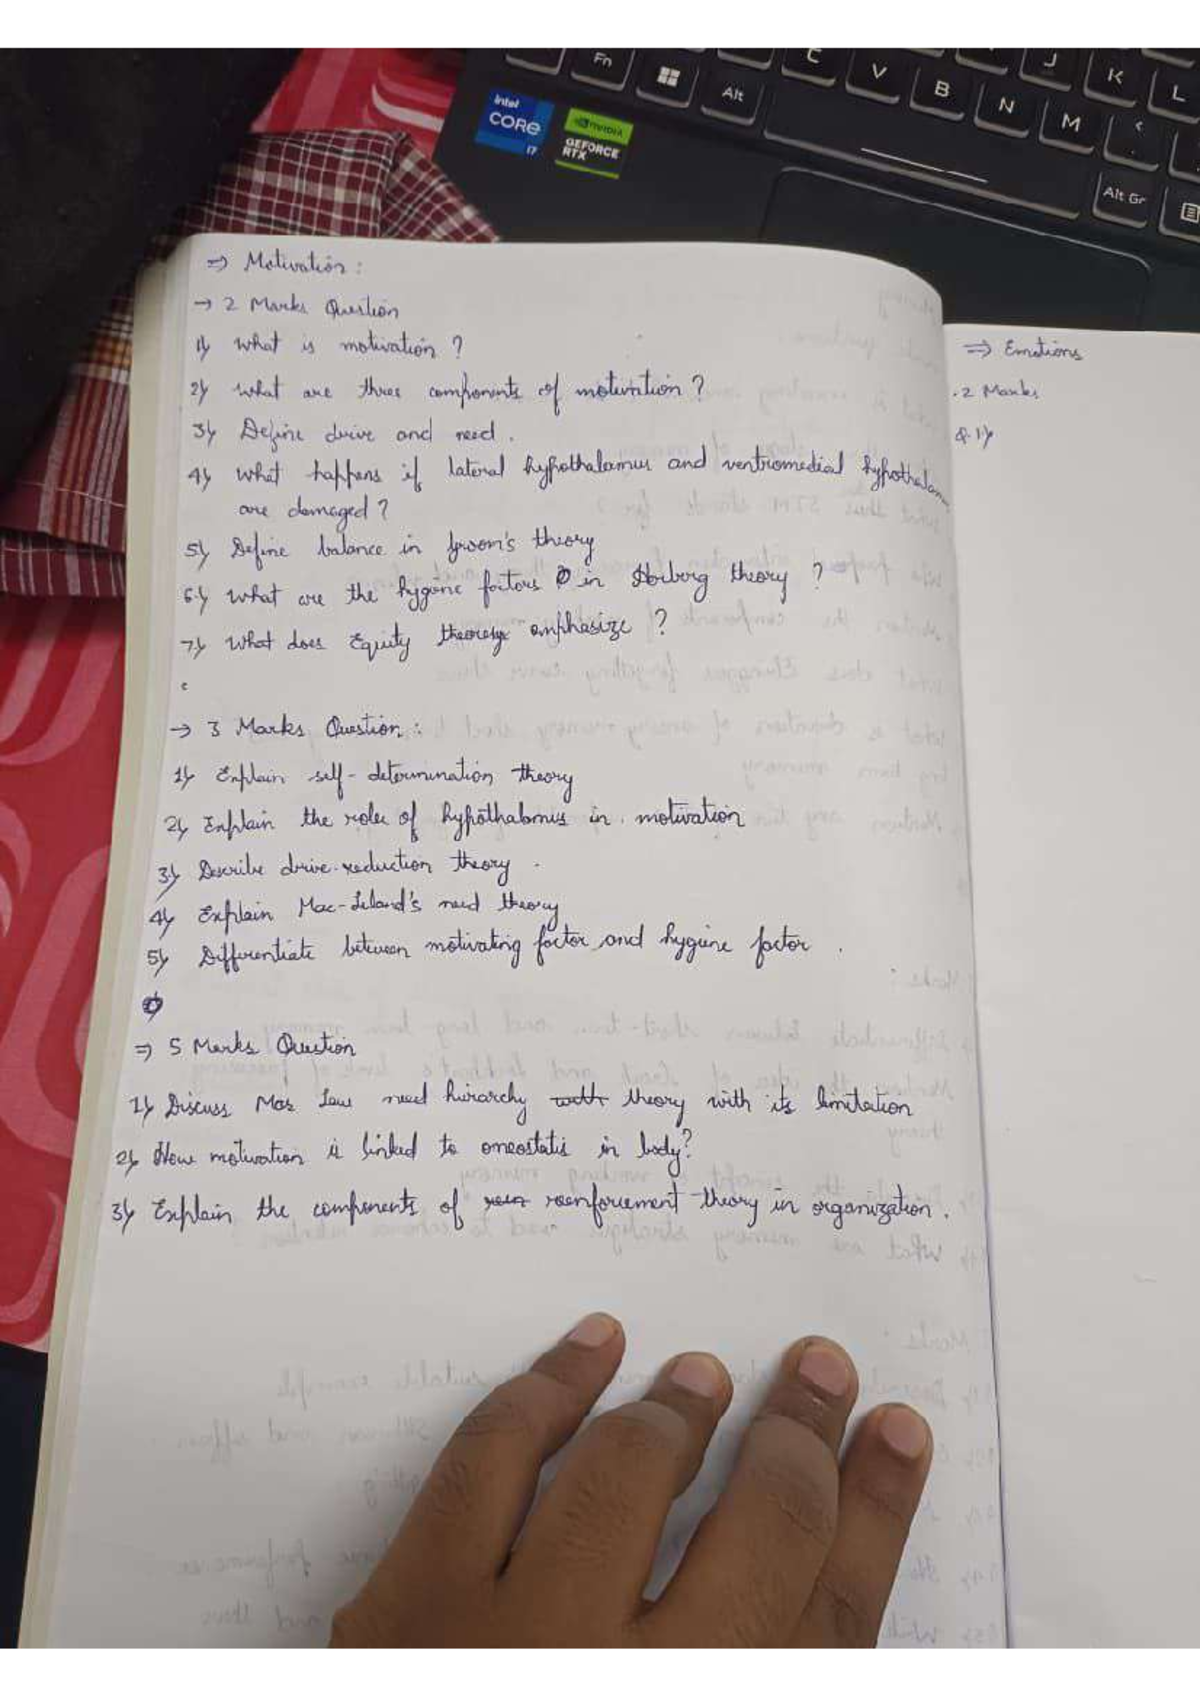 Fn
Alt
C
V
B
N
M
J
K
L
<
Alt Gr
intel
CORE
i7
NVIDIA
GEFORCE
RTX
⇒ Motivation :
→ 2 Marks Question
1) What is motivation ?
2) What are three components of motivation ?
3) Define drive and need .
4) What happens if lateral hypothalamus and ventromedial hypothalam
are damaged ?
5) Define balance in theory
6) What are the hygene factors in theory ?
7) What does Equity emphasize ?
→ 3 Marks Question :
1) Explain self-determination theory
2) Explain the roles of hypothalamus in motivation
3) Describe drive-reduction theory .
4) Explain Mac-Leland's need theory
5) Differentiate between motivating factor and hygiene factor .
⇒ 5 Marks Question
1) Discuss Mas Law need hirarchy theory with its limitation
2) How motivation is linked to omeostatis in body?
3) Explain the components of reenforcement theory in organization .
⇒ Emotions
. 2 Marks
Q.1)